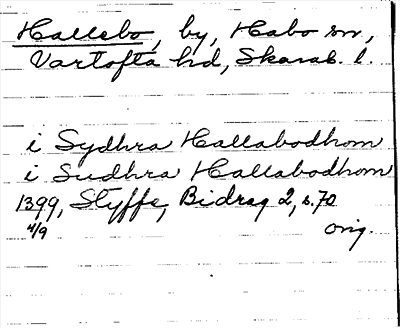 Hallebo, by, Habo sn,
Vartofta hd, Skarab. l.
i Sydhra Hallabodhom
i Sudhra Hallabodhom
1399, Styffe, Bidrag 2, s. 70
4/9 orig.